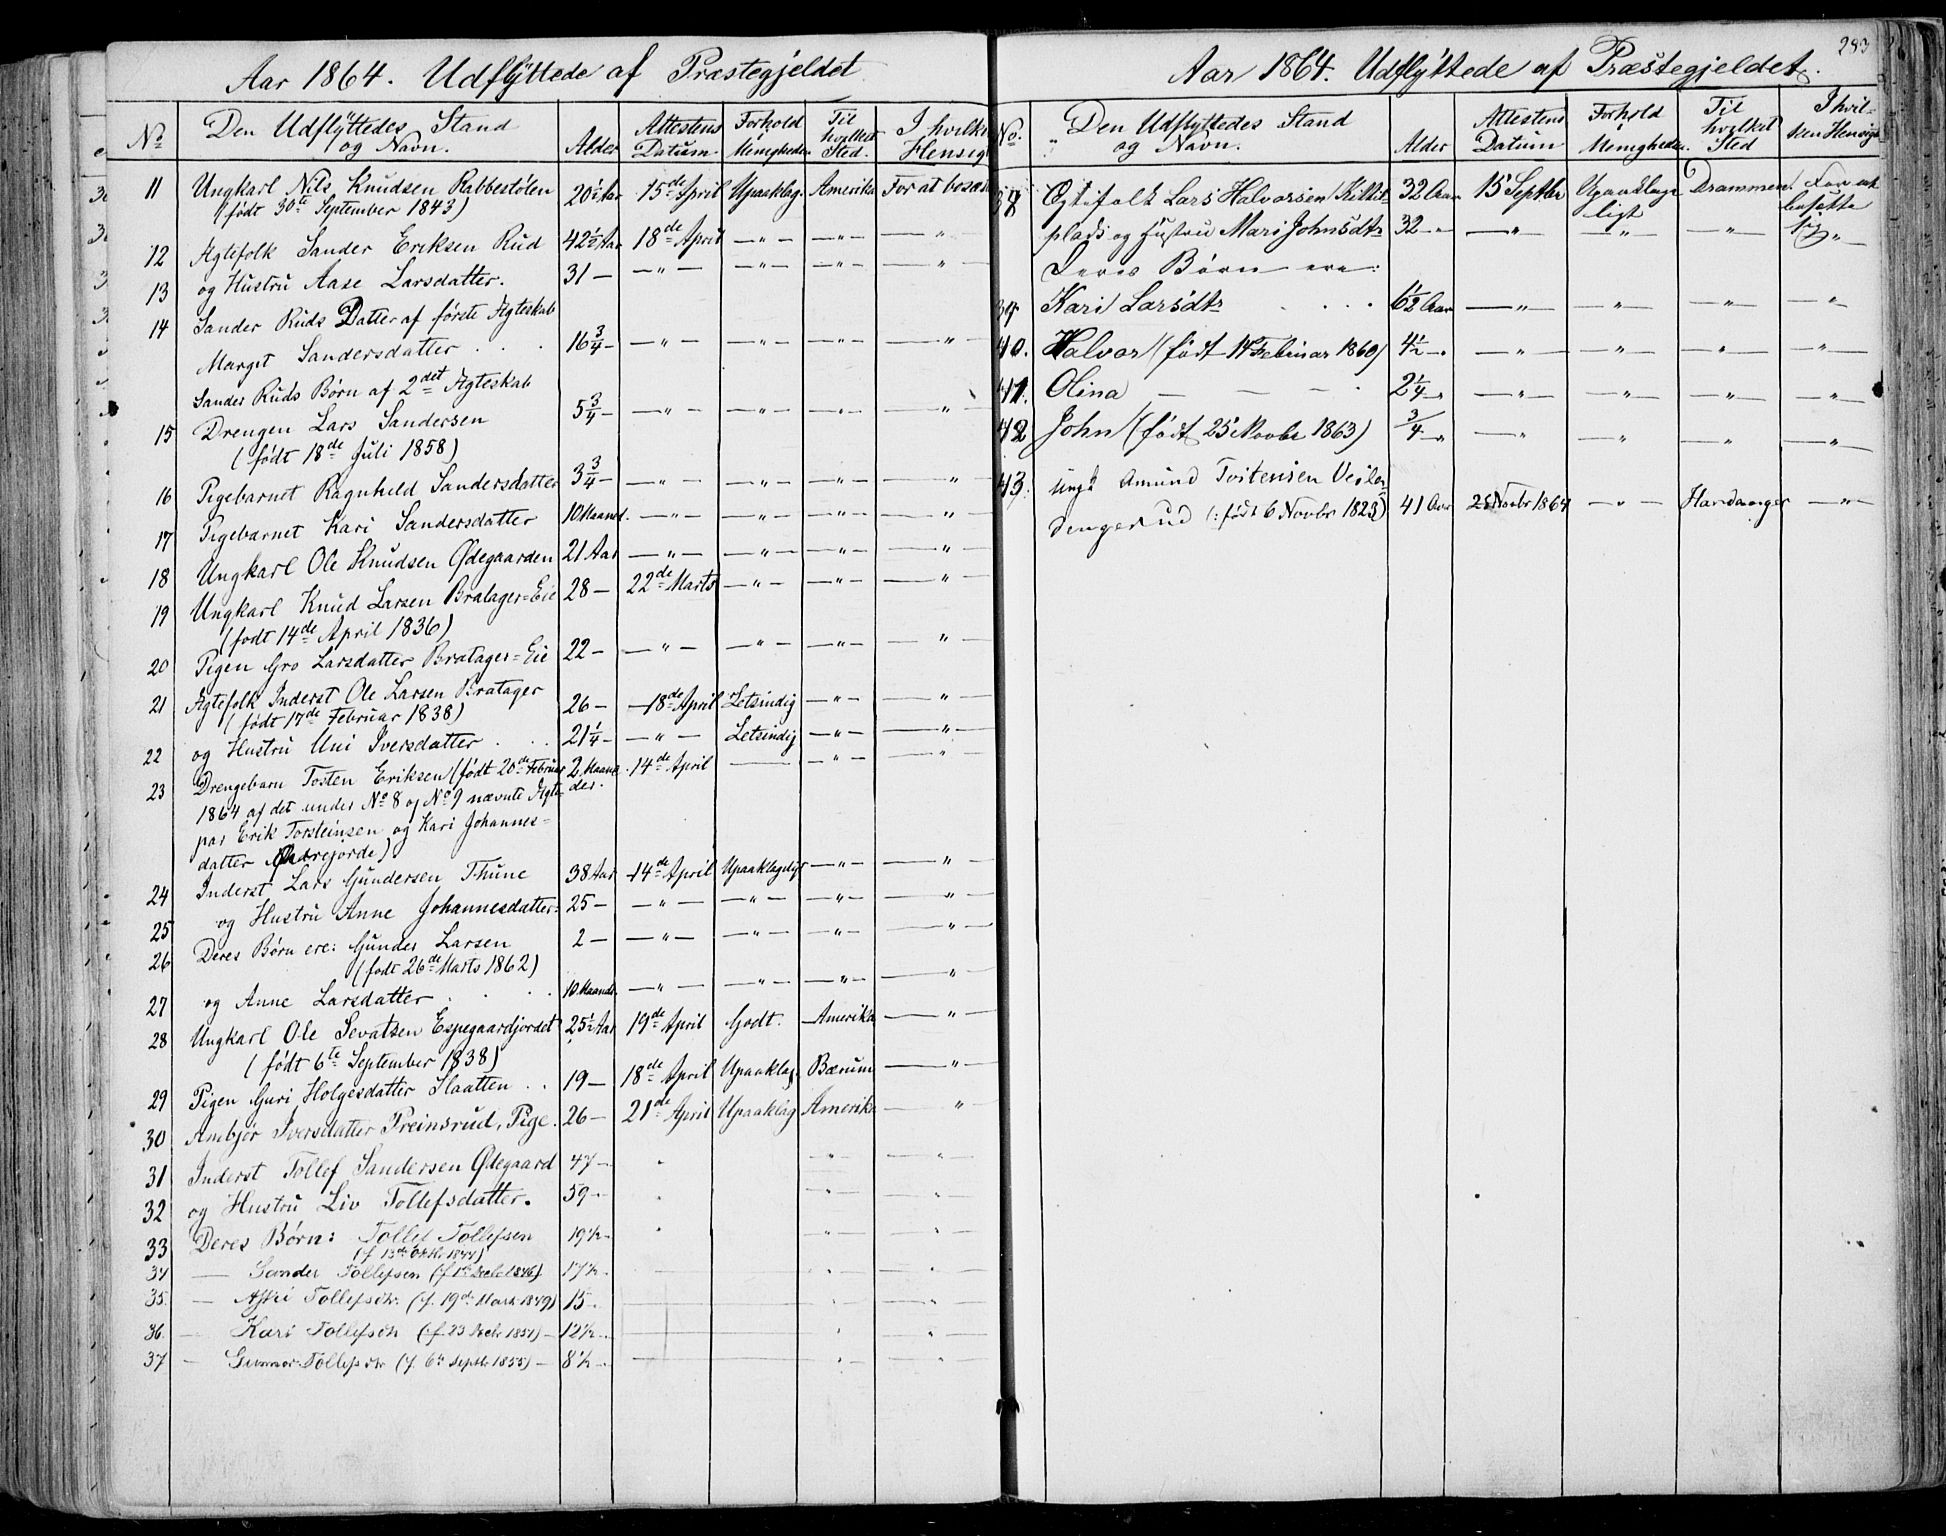 Aar 1864. Udflyttede af Præstegjeldet
No
Den Udflyttedes Stand og Navn.
Alder
Attestens Datum
Forhold Menigheden
Til hvilket Sted.
I hvilke Hensigt
11 Ungkarl Nils Knudsen Rabbestølen 20½ Aar 15de April Upaaklag. Amerika For at besæt
(født 30te September 1843)
12 Ægtefolk Sander Eriksen Rud 42½ Aar 18de April — " — — " — — " —
13 og Hustru Aase Larsdatter. 31 — — " — — " — — " — — " —
14 Sander Ruds Datter af første Ægteskab
Margit Sandersdatter . . . 16¾ — — " — — " — — " — — " —
Sander Ruds Børn af 2det Ægteskab
15 Drengen Lars Sandersen 5¾ — — " — — " — — " — — " —
(født 18de Juli 1858)
16 Pigebarnet Ragnhild Sandersdatter 3¾ — — " — — " — — " — — " —
17 Pigebarnet Kari Sandersdatter 10 Maaned. — " — — " — — " — — " —
18 Ungkarl Ole Knudsen Ødegaarden 21 Aar — " — — " — — " — — " —
19 Ungkarl Knud Larsen Bratager=Eie 28 — 22de Marts — " — — " — — " —
(født 14de April 1836)
20 Pigen Gro Larsdatter Bratager=Eie 22 — — " — — " — — " — — " —
21 Ægtefolk Inderst Ole Larsen Bratager 26 — 18de April Letsindig — " — — " —
(født 17de Februar 1838)
22 og Hustru Uni Iversdatter . . . 21¼ — — " — Letsindig — " — — " —
23 Drengebarn Tosten Eriksen (født 20de Februar 2 Maane 14de April — — " — — " —
1864 af det under No 8 og No 9 nævnte Ægte= der.
par Erik Torsteinsen og Kari Johannes=
datter
24 Inderst Lars Gundersen Thune 38 Aar 14de April Upaaklageligt — " — — " —
25 og Hustru Anne Johannesdatter: 25 — — " — — " — — " — — " —
26 Deres Børn ere: Gunder Larsen 2 — — " — — " — — " — — " —
(født 26de Marts 1862)
27 og Anne Larsdatter . . . 10 Maaned. — " — — " — — " — — " —
28 Ungkarl Ole Sevatsen Espegaardjordet 25½ Aar 19de April Godt. Amerika — " —
(født 6te September 1838)
29 Pigen Guri Holgesdatter Slaatten . . 19 — 18de April Upaaklag. Bærum — " —
30 Ambjør Iversdatter Treinsrud, Pige. 26 — 21de April Upaaklag Amerika — " —
31 Inderst Tollef Sandersen Ødegaard 47 — " — " — — " —
32 og Hustru Liv Tollefsdatter. 59 — " — " — — " —
33 Deres Børn: Tollef Tollefsen 19½ — " — " — — " —
(f 13de Oktbr 1844)
34 — Sander Tollefsen (f. 1te Decbr 1846) 17½ — " "
35. — Askri Tollefsdtr. (f. 19de Marts 1849) 15 — " "
36. — Kari Tollefsdtr (f. 23 Decbr 1851) — 12½ — " "
37 — Gunnor Tollefsdtr (f. 6te Septbr 1855) — 8½ — " "
283
Aar 1864. Udflyttede af Præstegjeldet.
No.
Den Udflyttedes Stand og Navn.
Alder
Attestens Datum
Forhold Menigheden
Til hvilket Sted
I hvil- ken Hensigt
38 Egtefolk Lars Halvorsen 32 Aar 15 Septbr Upaaklage Drammen. For at
plads og Hustru Mari Johnsdtr 32 — " — " — ligt — " — — " — besætte sig "
Deres Børn ere:
39 Kari Larsdtr . . . 6½ Aar — " — — " — — " — — " —
40. Halvor (født 14 Februar 1860) 4½ — " — " — — " — — " — — " —
41. Olina — — — 2¼ — " — " — — " — — " — — " —
42 John (født 25 Novbr 1863) ¾ — " — " — — " — — " — — " —
43. ungk Amund Tostensen Veslen-
dengerud (: født 6 Novbr 1823) 41 Aar 25 Novbr 1864 — " — Hardanger — " —